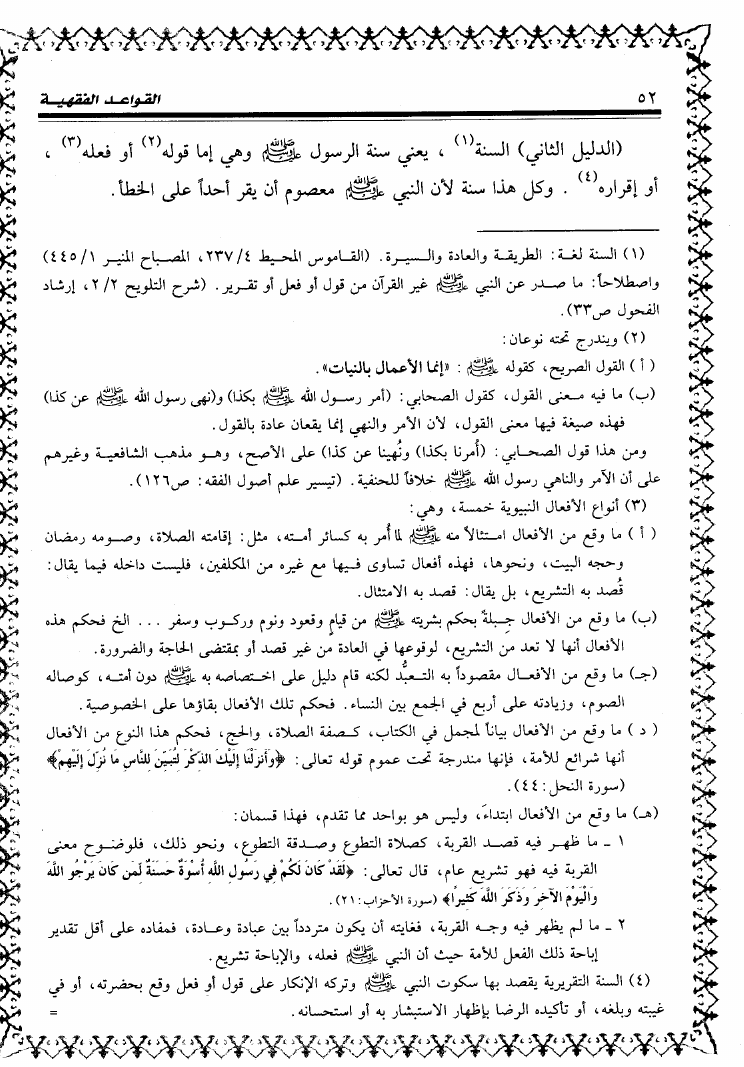 ٥٢
القواعد الفقهية
(الدليل الثاني) السنة(١) ، يعني سنة الرسول ﷺ وهي إما قوله(٢) أو فعله(٣) ،
أو إقراره(٤) . وكل هذا سنة لأن النبي ﷺ معصوم أن يقر أحداً على الخطأ.
(١) السنة لغة: الطريقة والعادة والسيرة. (القاموس المحيط ٢٣٧/٤، المصباح المنير ٤٤٥/١)
واصطلاحاً: ما صدر عن النبي ﷺ غير القرآن من قول أو فعل أو تقرير. (شرح التلويح ٢/٢، إرشاد
الفحول ص٣٣).
(٢) ويندرج تحته نوعان:
( أ ) القول الصريح، كقوله ﷺ : «إنما الأعمال بالنيات».
(ب) ما فيه معنى القول، كقول الصحابي: (أمر رسول الله ﷺ بكذا) و(نهى رسول الله ﷺ عن كذا)
فهذه صيغة فيها معنى القول، لأن الأمر والنهي إنما يقعان عادة بالقول.
ومن هذا قول الصحابي: (أُمرنا بكذا) ونُهينا عن كذا) على الأصح، وهو مذهب الشافعية وغيرهم
على أن الآمر والناهي رسول الله ﷺ خلافاً للحنفية. (تيسير علم أصول الفقه: ص١٢٦).
(٣) أنواع الأفعال النبيوية خمسة، وهي:
( أ ) ما وقع من الأفعال امتثالاً منه ﷺ لما أُمر به كسائر أمته، مثل: إقامته الصلاة، وصومه رمضان
وحجه البيت، ونحوها، فهذه أفعال تساوى فيها مع غيره من المكلفين، فليست داخله فيما يقال:
قُصد به التشريع، بل يقال: قصد به الامتثال.
(ب) ما وقع من الأفعال جِبلةً بحكم بشريته ﷺ من قيام وقعود ونوم وركوب وسفر ... الخ فحكم هذه
الأفعال أنها لا تعد من التشريع، لوقوعها في العادة من غير قصد أو بمقتضى الحاجة والضرورة.
(جـ) ما وقع من الأفعال مقصوداً به التعبُّد لكنه قام دليل على اختصاصه به ﷺ دون أمته، كوصاله
الصوم، وزيادته على أربع في الجمع بين النساء. فحكم تلك الأفعال بقاؤها على الخصوصية.
( د ) ما وقع من الأفعال بياناً لمجمل في الكتاب، كصفة الصلاة، والحج، فحكم هذا النوع من الأفعال
أنها شرائع للأمة، فإنها مندرجة تحت عموم قوله تعالى: ﴿وَأَنزَلْنَا إِلَيْكَ الذِّكْرَ لِتُبَيِّنَ لِلنَّاسِ مَا نُزِّلَ إِلَيْهِمْ﴾
(سورة النحل:٤٤).
(هـ) ما وقع من الأفعال ابتداءَ، وليس هو بواحد مما تقدم، فهذا قسمان:
١ ـ ما ظهر فيه قصد القربة، كصلاة التطوع وصدقة التطوع، ونحو ذلك، فلوضوح معنى
القربة فيه فهو تشريع عام، قال تعالى: ﴿لَقَدْ كَانَ لَكُمْ فِي رَسُولِ اللَّهِ أُسْوَةٌ حَسَنَةٌ لِّمَن كَانَ يَرْجُو اللَّهَ
وَالْيَوْمَ الآخِرَ وَذَكَرَ اللَّهَ كَثِيرًا﴾ (سورة الأحزاب:٢١).
٢ ـ ما لم يظهر فيه وجه القربة، فغايته أن يكون متردداً بين عبادة وعادة، فمفاده على أقل تقدير
إباحة ذلك الفعل للأمة حيث أن النبي ﷺ فعله، والإباحة تشريع.
(٤) السنة التقريرية يقصد بها سكوت النبي ﷺ وتركه الإنكار على قول أو فعل وقع بحضرته، أو في
غيبته وبلغه، أو تأكيده الرضا بإظهار الاستبشار به أو استحسانه. =